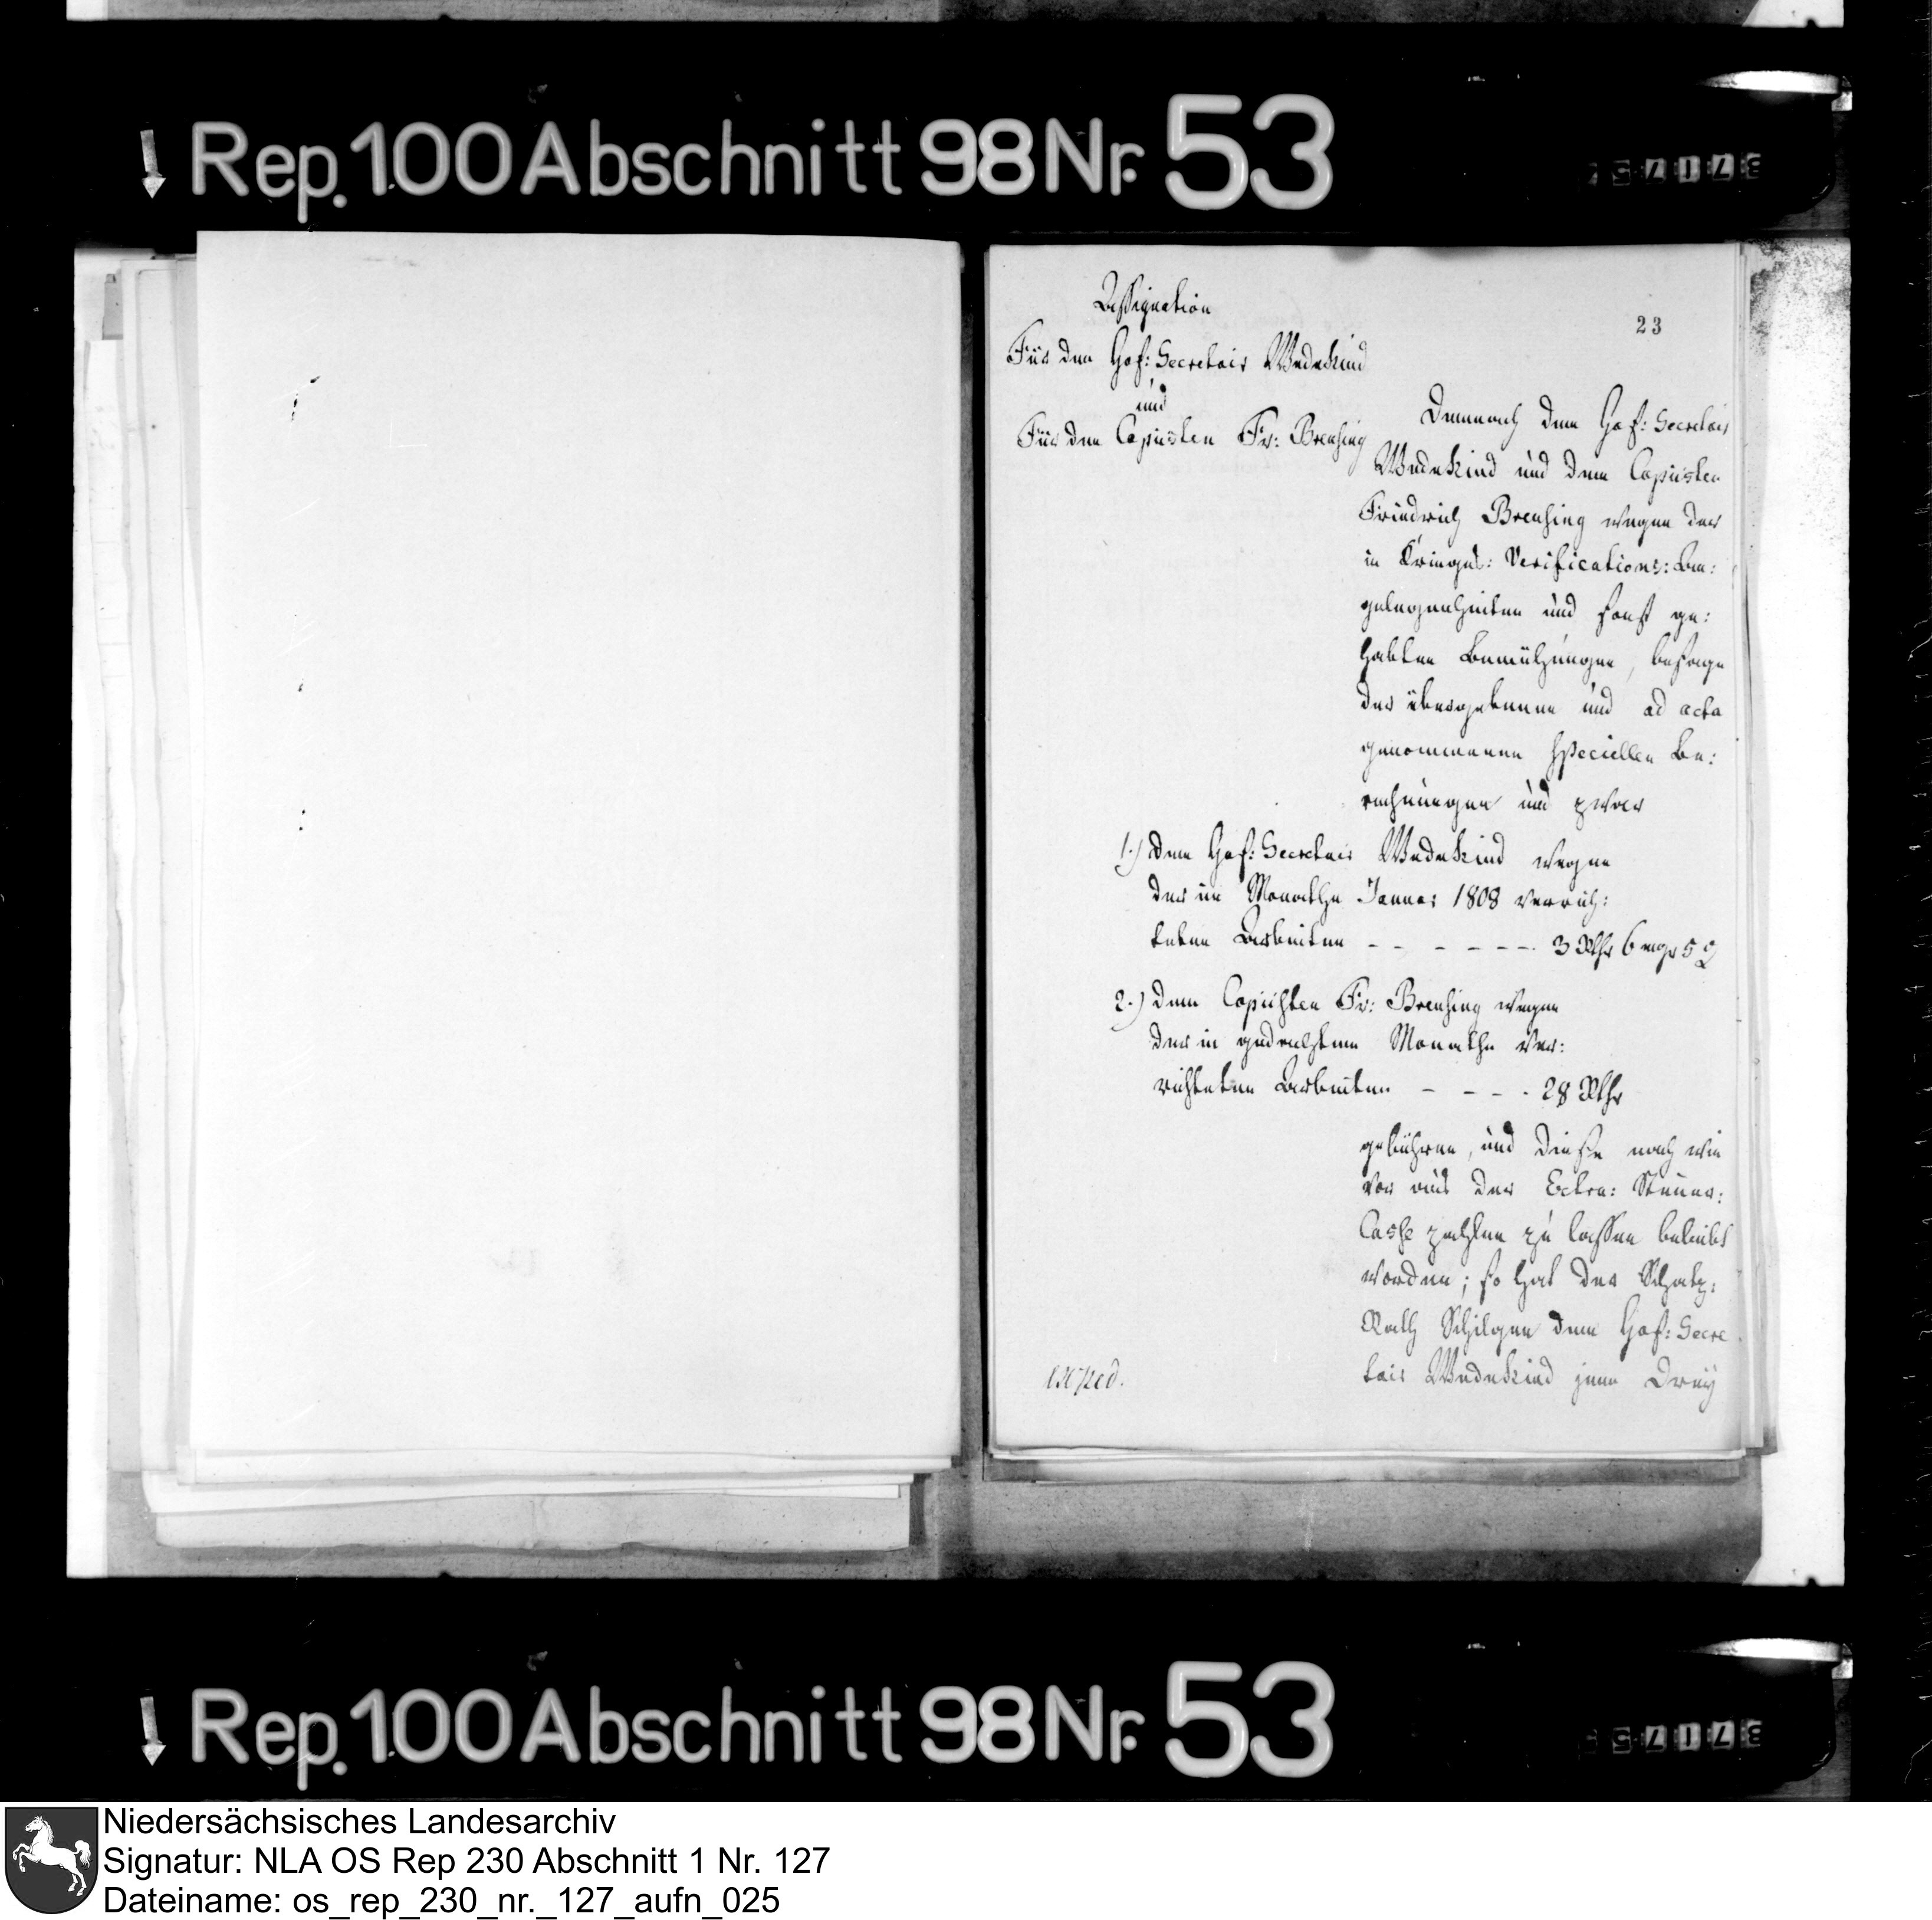 Rep. 100 Abschnitt 98 Nr. 53
Assignation
Für den Hof: Secretair Wedekind
und
Für den Copiisten Fr: Breusing
23
Demnach dem Hof: Secretair
Wedekind und dem Copiisten
Friedrich Breusing wegen der
in Kriegs: Verifications: An:
gelegenheiten und sonst ge:
habten Bemühungen, besage
der übergebenen und ad acta
genommenen speciellen Be:
rechnungen und zwar
1.) dem Hof: Secretair Wedekind wegen
der im Monathe Januar 1808 verrich:
teten Arbeiten - - - - - - 3 Rthr 6 mgr 5 ₰
2.) dem Copiisten Fr: Breusing wegen
der in gedachtem Monathe ver:
richteten Arbeiten - - - - 28 Rthr
gebühren, und diese nach wie
vor aus der Extra: Steuer:
Casse zahlen zu lassen beliebt
worden; so hat der Schatz:
Rath Schilgen dem Hof: Secre
tair Wedekind jene Drey
exped.
Rep. 100 Abschnitt 98 Nr. 53
Niedersächsisches Landesarchiv
Signatur: NLA OS Rep 230 Abschnitt 1 Nr. 127
Dateiname: os_rep_230_nr._127_aufn_025